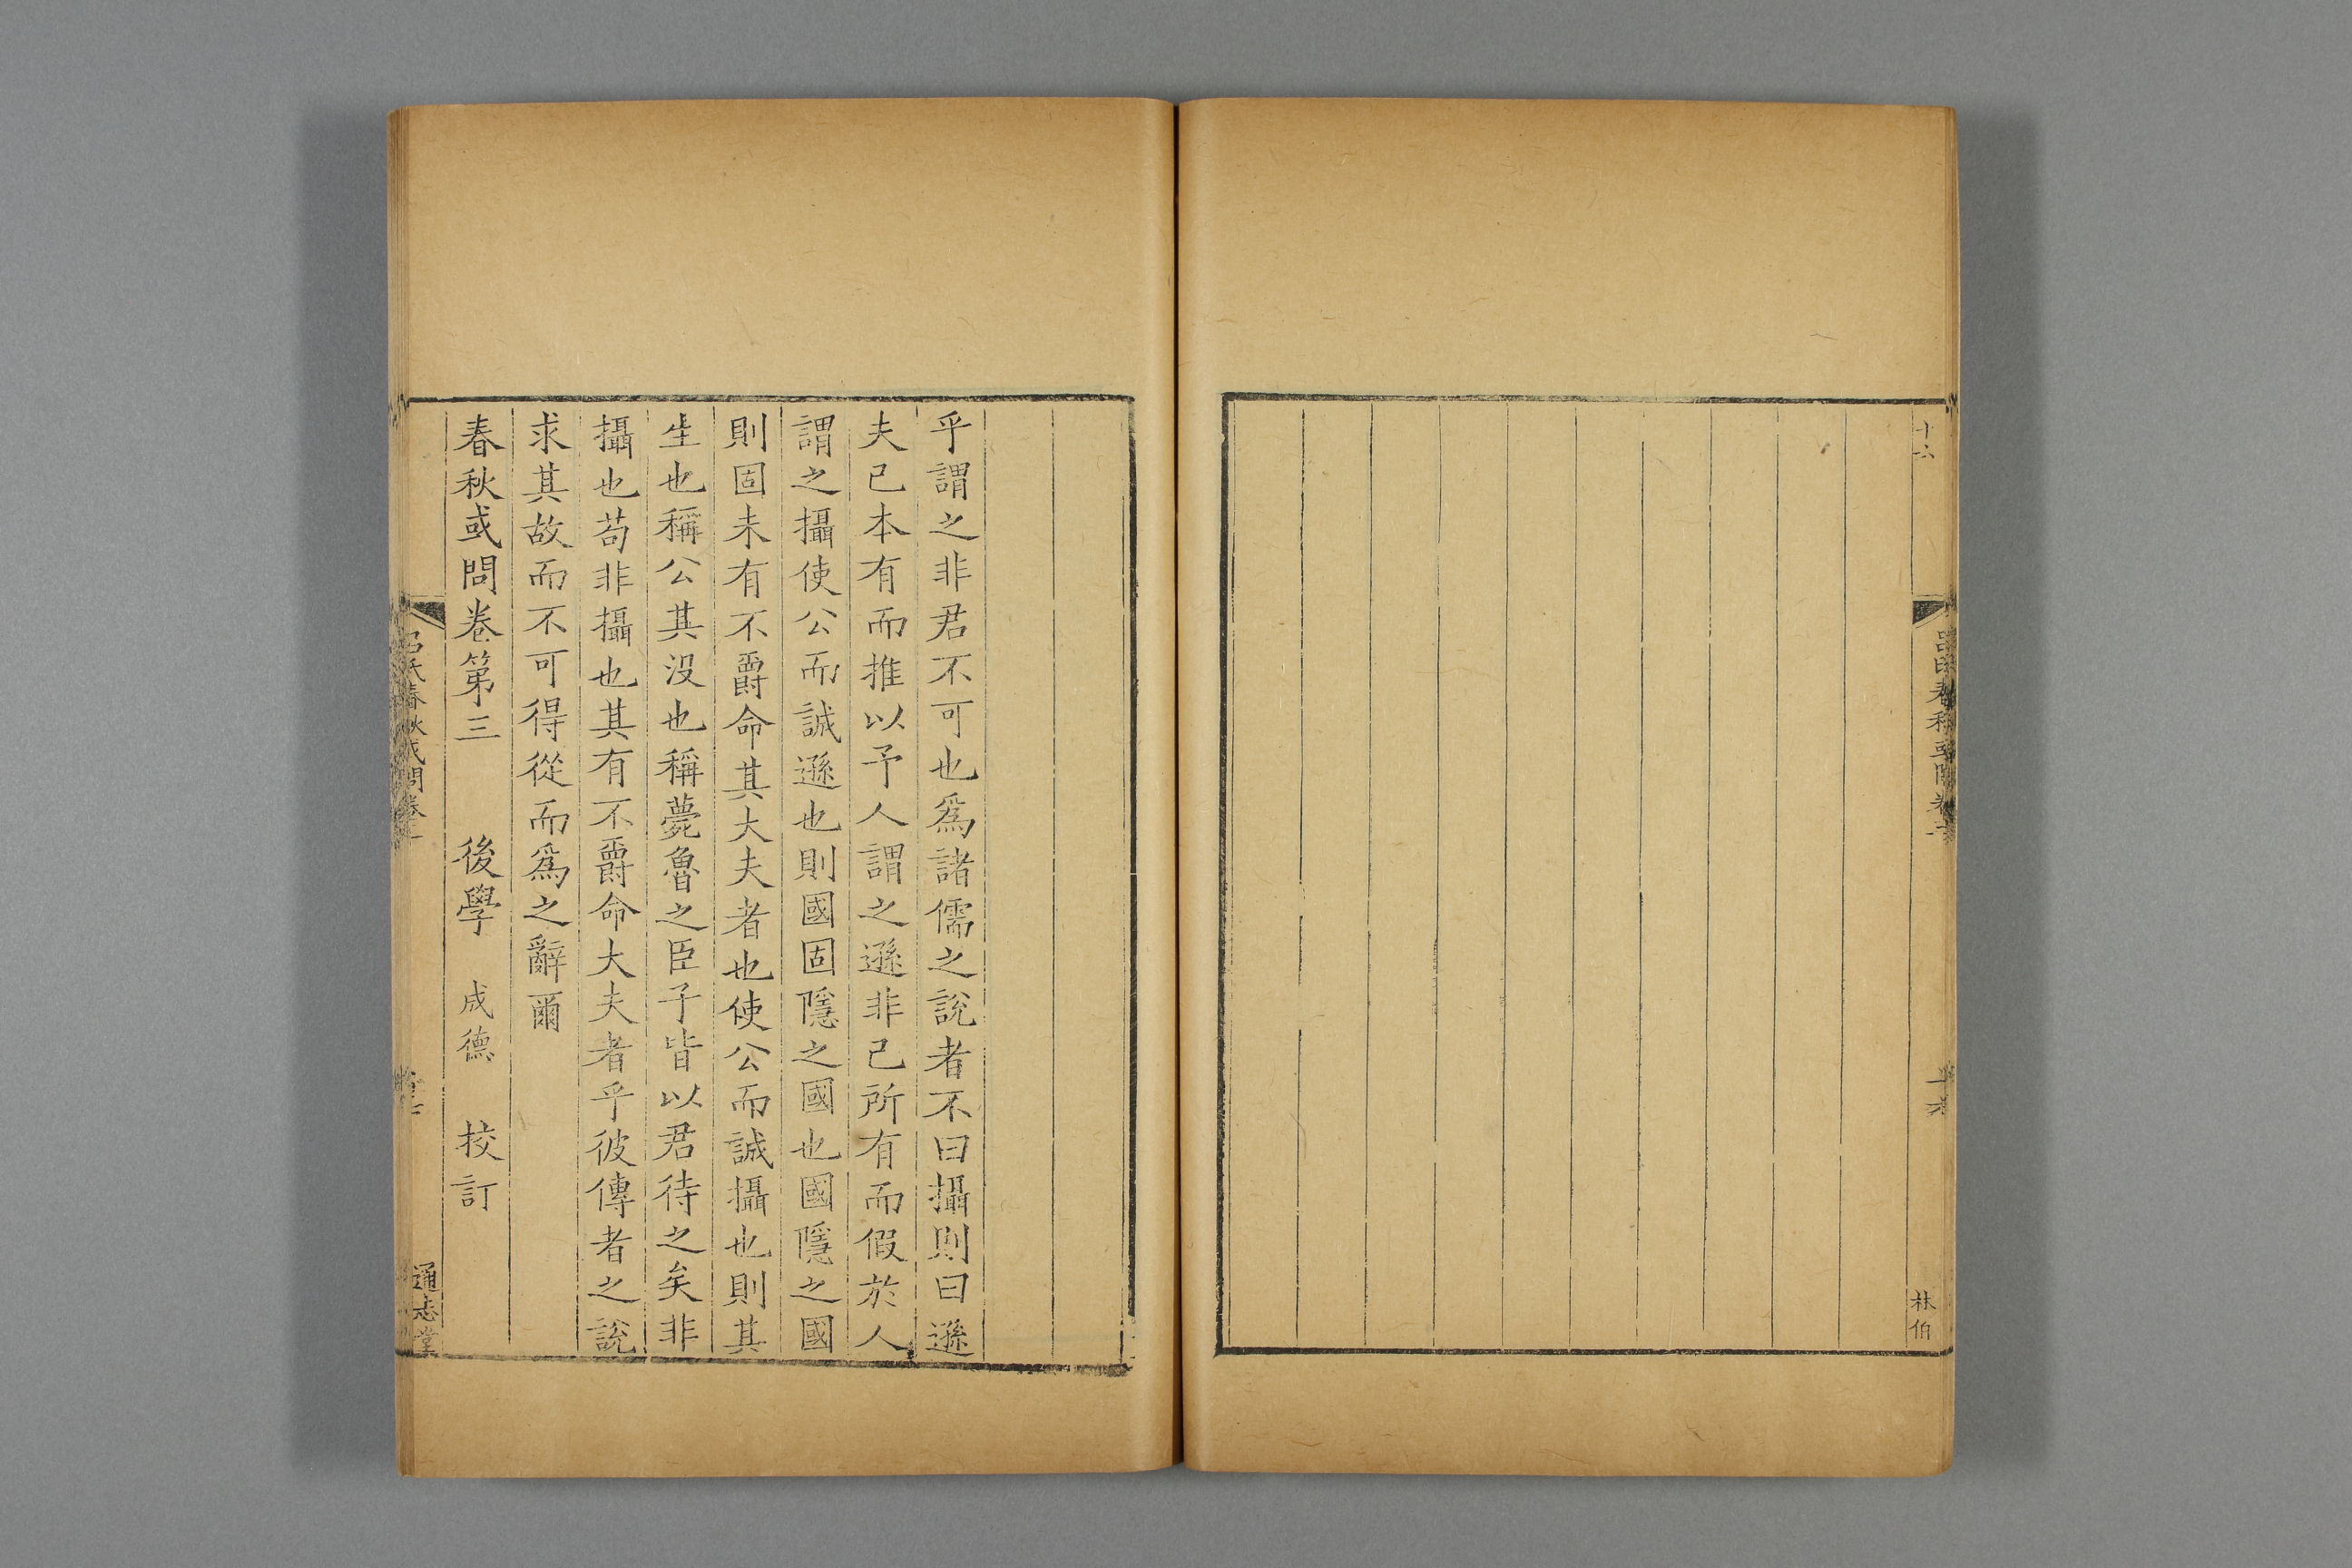 十六
林伯
乎謂之非君不可也爲諸儒之說者不曰攝則曰遜
夫已本有而推以予人謂之遜非己所有而假於人
謂之攝使公而誠遜也則國固隱之國也國隱之國
則固未有不爵命其大夫者也使公而誠攝也則其
生也稱公其没也稱薨魯之臣子皆以君待之矣非
攝也苟非攝也其有不爵命大夫者乎彼傳者之說
求其故而不可得從而爲之辭爾
春秋或問卷第三 後學 成德 校訂
呂氏春秋或問卷三
通志堂